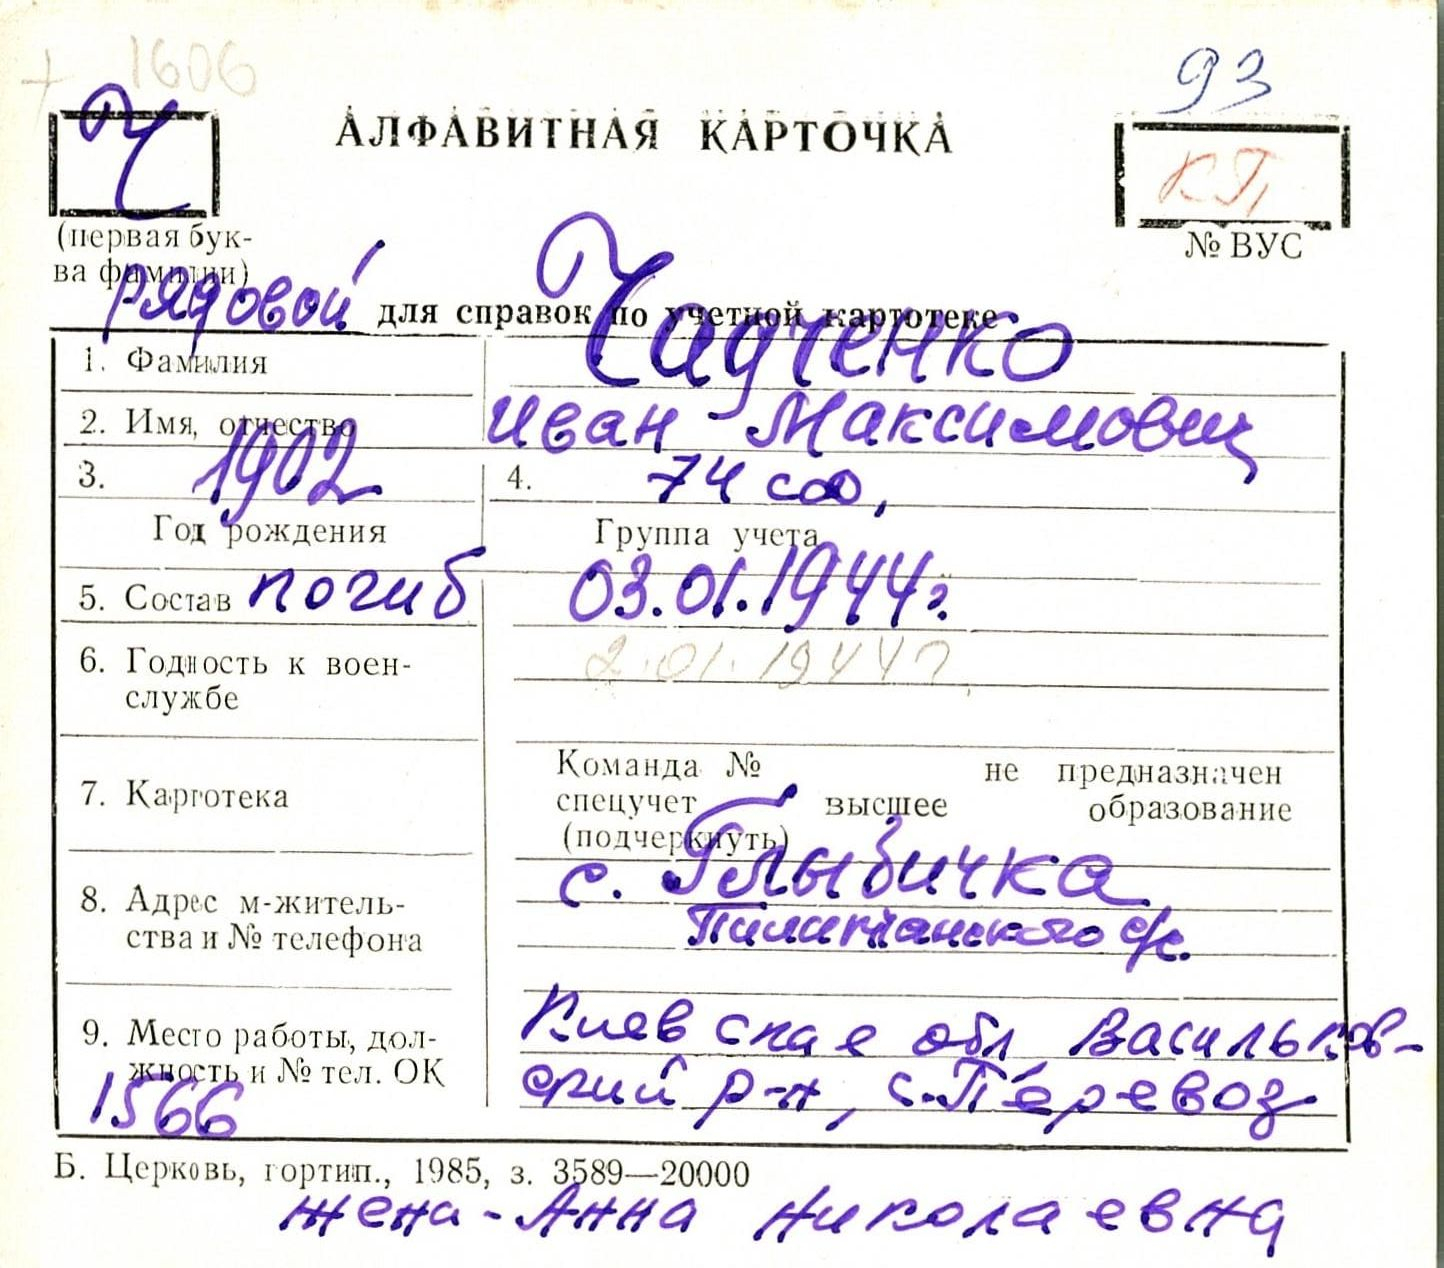 1606
93
Ч
АЛФАВИТНАЯ КАРТОЧКА
КП
(первая бук-
ва фамилии)
№ ВУС
рядовой
для справок по учетной картотеке
1. Фамилия Чадченко
2. Имя, отчество Иван Максимович
3. 1902 4. 74 сд,
Год рождения Группа учета
5. Состав погиб 03.01.1944г.
2.01.1944г.
6. Годность к воен-
службе
Команда № не предназначен
7. Картотека спецучет высшее образование
(подчеркнуть)
8. Адрес м-житель-
ства и № телефона
с. Глыбичка
Пилипчанского с/с.
9. Место работы, дол-
жность и № тел. ОК
Киевская обл Васильков-
ский р-н, с. Перевоз
1566
Б. Церковь, гортип., 1985, з. 3589—20000
жена - Анна Николаевна